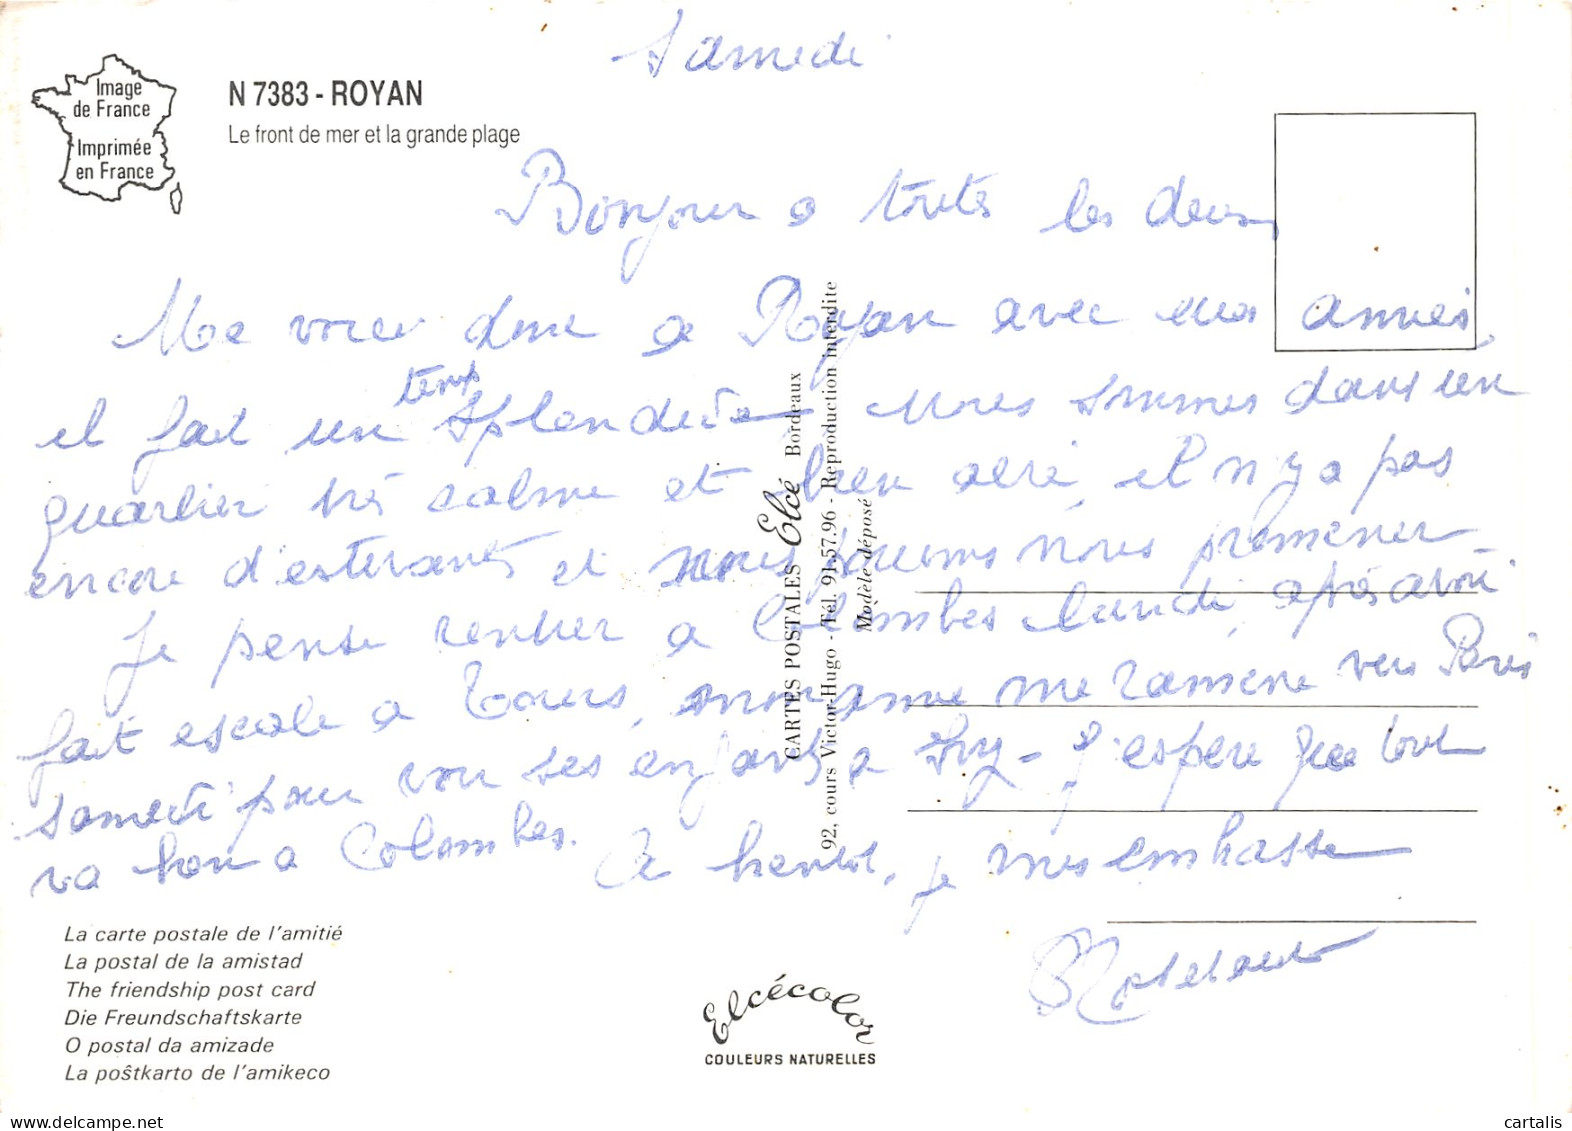 Image
de France
Imprimée
en France
N 7383 - ROYAN
Le front de mer et la grande plage
Samedi
Bonjour a toutes les deux
Me voici donc a Royan avec mes amies,
il fait un temps splendide nous sommes dans un
quartier très calme et bien aéré, il n'y a pas
encore d'estivants et nous pouvons nous promener
Je pense rentrer a Colombes lundi, après avoir
fait escale a Tours, mon amie me ramène vers Paris
samedi pour voir ses enfants a Ivry - J'espère que tout
va bon a Colombes. A bientot, je vous embrasse
CARTES POSTALES Elcé Bordeaux
92, cours Victor-Hugo - Tél. 91.57.96 - Reproduction interdite
Modèle déposé
La carte postale de l'amitié
La postal de la amistad
The friendship post card
Die Freundschaftskarte
O postal da amizade
La poŝtkarto de l'amikeco
Elcécolor
COULEURS NATURELLES
delcampe.net
cartalis